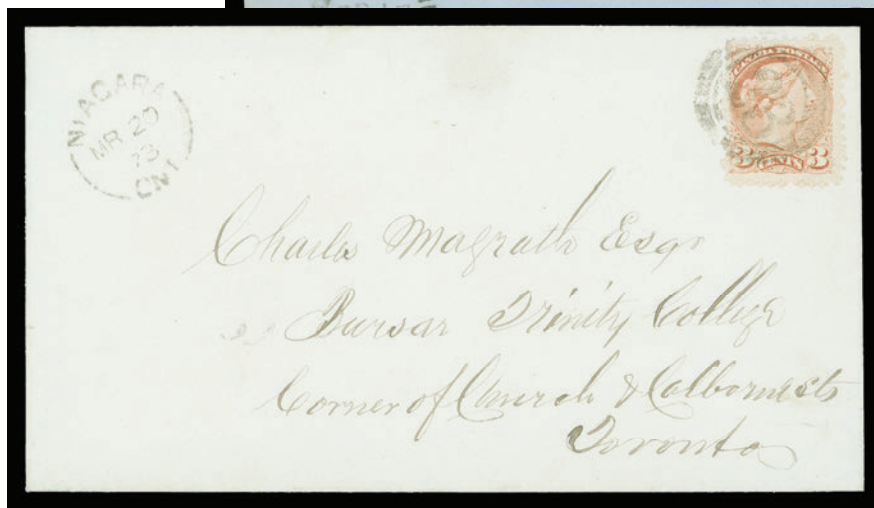 NIAGARA
MR 20
73
ONT
CANADA POSTAGE
3 CENTS 3
Charles Magrath Esqr
Bursar Trinity College
Corner of Church & Colborne Sts
Toronto